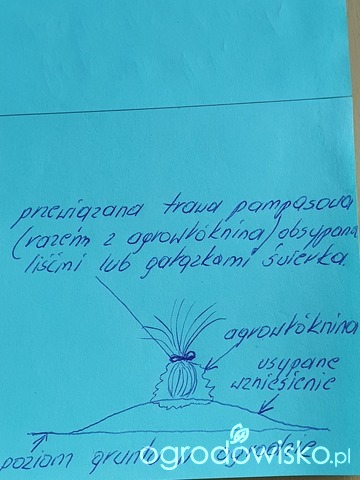 przewiązana trawa pampasowa
(razem z agrowłókniną) obsypana
liśćmi lub gałązkami świerka.
agrowłóknina
usypane
wzniesienie
poziom gruntu w ogrodzie
ogrodowisko.pl